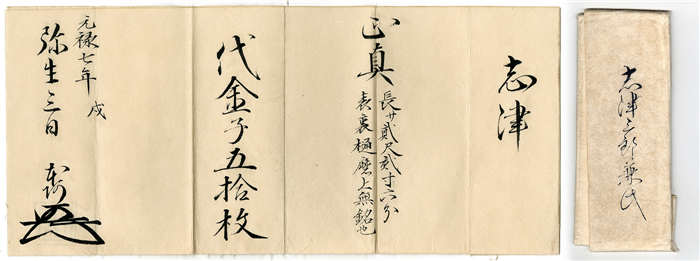 志津
正真
長サ貳尺貳寸六分
表裏樋磨上無銘也
代金子五拾枚
元禄七年
戌
弥生三日
本阿
志津三郎兼氏